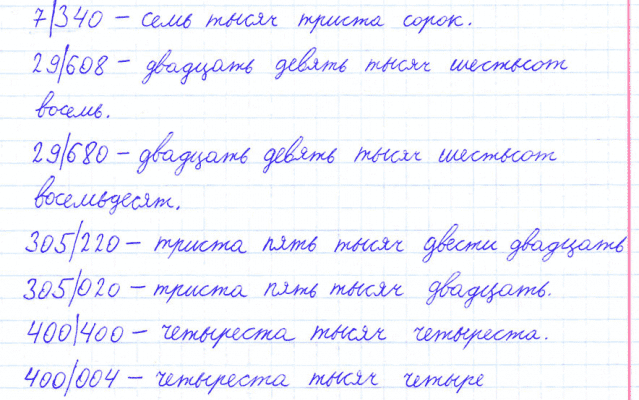 7|340 – семь тысяч триста сорок.
29|608 – двадцать девять тысяч шестьсот
восемь.
29|680 – двадцать девять тысяч шестьсот
восемьдесят.
305|220 – триста пять тысяч двести двадцать
305|020 – триста пять тысяч двадцать.
400|400 – четыреста тысяч четыреста.
400|004 – четыреста тысяч четыре